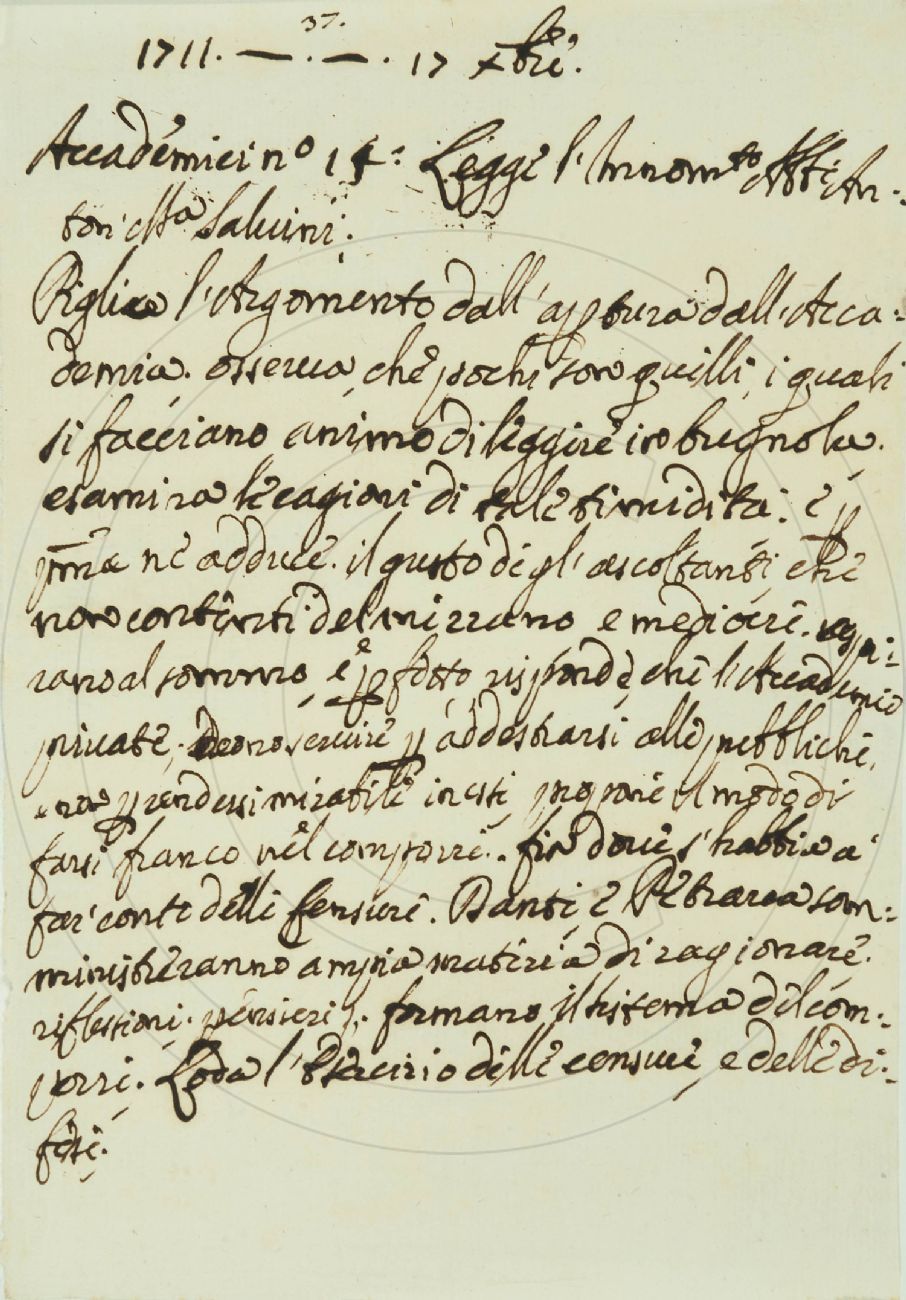 37.
1711. — . — . 17 xbre.
Accademici n° 14: Legge l'Innom.to Abb.e An-
ton M.a Salvini.
Piglia l'Argomento dall'apertura dall'Acca-
demia. osserva, che pochi son quelli, i quali
si facciano animo di leggere in bugnola.
esamina le cagioni di tale timidità. e p
pma ne adduce. il gusto degl'ascoltanti, che
non contenti del mezzano e mediocre.
rano al sommo, e p risponde, che l'Accademie
private, deono servire p addestrarsi alle pubbliche,
propone il modo di
farsi franco nel comporre. fin dove s'habbia a
far conto delle censure. Dante, e Petrarca som-
ministreranno ampia materia di ragionare.
riflessioni. pensieri. formano il sistema del com-
porre. Loda l'Esercizio delle censure, e delle di-
fese.